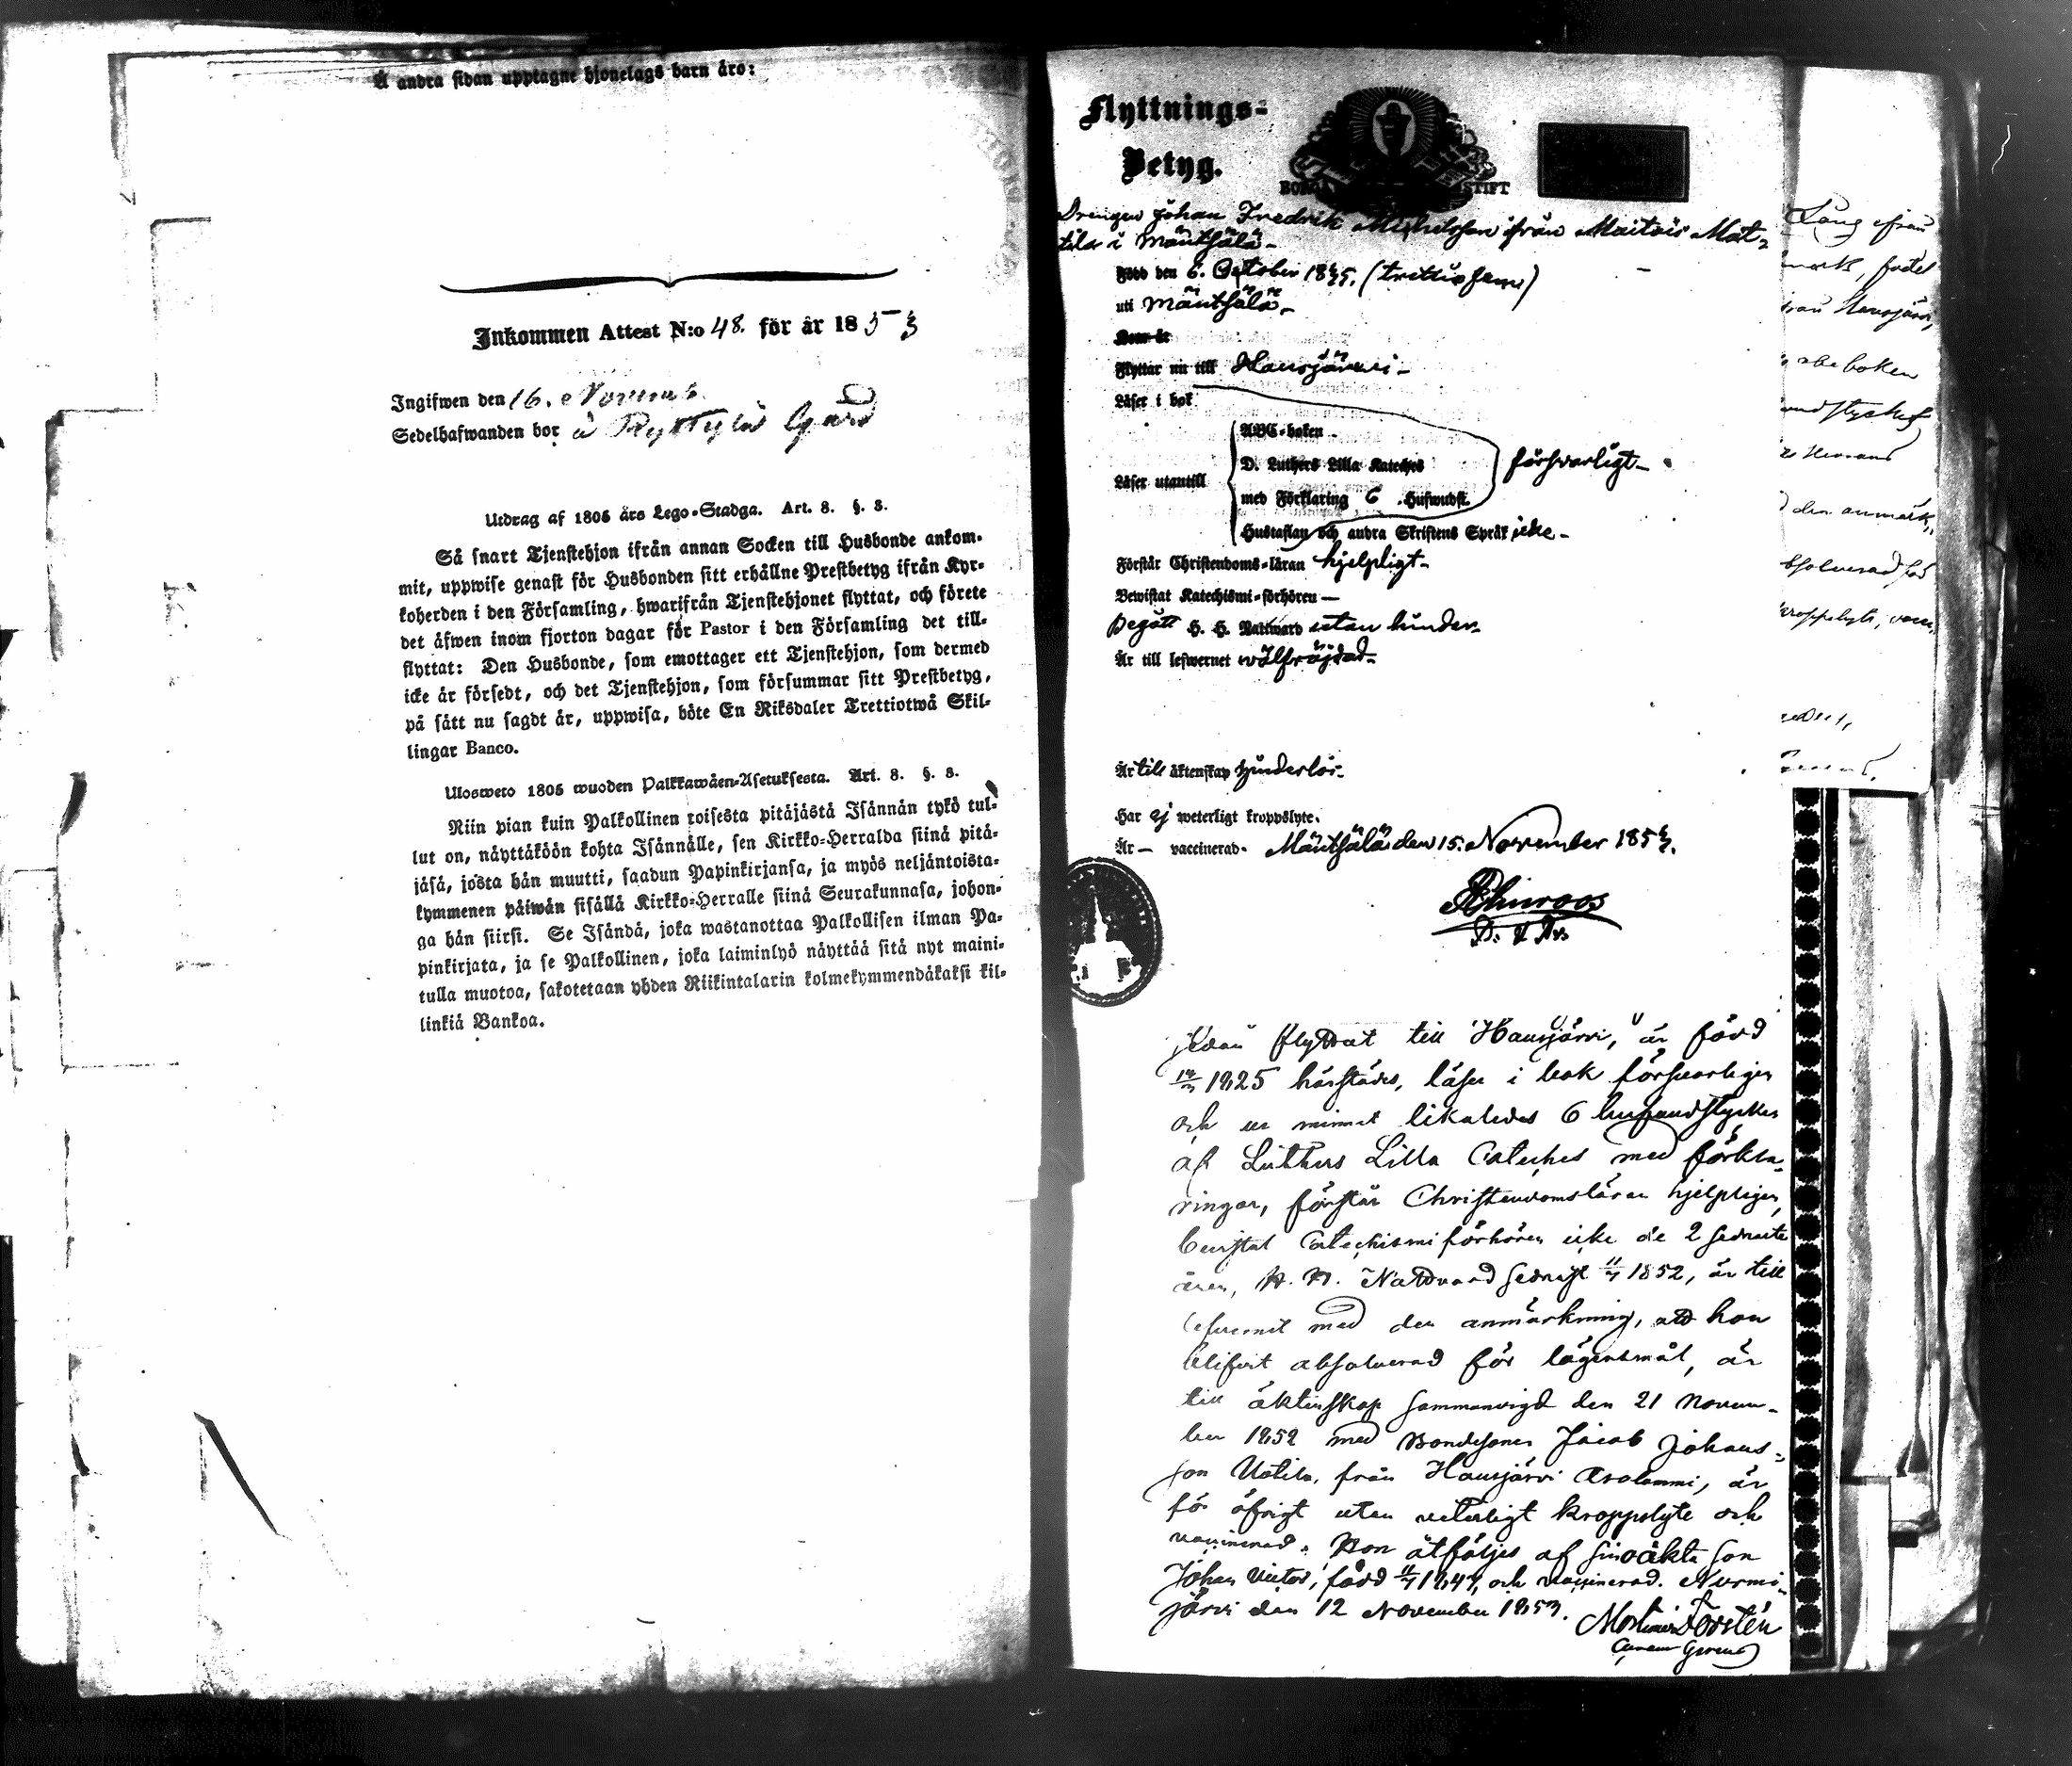 Å andra sidan upptagne hjonelags barn äro:
Inkommen Attest N:o 48. för år 1853
Ingifwen den 16. Novemb.
Sedelhafwanden bor å Ryttylä Gård
Utdrag af 1805 års Lego-Stadga. Art. 8. §. 8.
Så snart Tjenstehjon ifrån annan Socken till Husbonde ankom-
mit, uppwise genast för Husbonden sitt erhållne Prestbetyg ifrån Kyr-
koherden i den Församling, hwarifrån Tjenstehjonet flyttat, och förete
det äfwen inom fjorton dagar för Pastor i den Församling det till-
flyttat: Den Husbonde, som emottager ett Tjenstehjon, som dermed
icke är försedt, och det Tjenstehjon, som försummar sitt Prestbetyg,
på sätt nu sagdt är, uppwisa, böte En Riksdaler Trettiotwå Skil-
lingar Banco.
Ulosweto 1805 wuoden Palkkawäen-Asetuksesta. Art. 8. §. 8.
Niin pian kuin Palkollinen toisesta pitäjästä Isännän tykö tul-
lut on, näyttäköön kohta Isännälle, sen Kirkko-Herralda siinä pitä-
jäsä, josta hän muutti, saadun Papinkirjansa, ja myös neljäntoista-
kymmenen päiwän sisällä Kirkko-Herralle siinä Seurakunnasa, johon-
ga hän siirsi. Se Isändä, joka wastanottaa Palkollisen ilman Pa-
pinkirjata, ja se Palkollinen, joka laiminlyö näyttää sitä nyt maini-
tulla muotoa, sakotetaan yhden Riikintalarin kolmekymmendäkaksi kil-
linkiä Bankoa.
Flyttnings-
Betyg.
STIFT
Drengen Johan Fredrik Michelsson ifrån Maitois Mat-
tila i Mäntsälä-
Född den 6. October 1835. (trettiofem)
uti Mäntsälä-
Kom år
Flyttar nu till Hausjärvi-
Läser i bok
ABC-boken
D. Luthers Lilla Kateches
försvarligt-
Läser utantill
med Förklaring 6 Hufwudst.
Hustaflan och andra Skriftens Språk icke-
Förstår Christendoms-läran hjelpligt-
Bewistat Katechismi-förhören —
Begått H. H. Nattward utan hinder-
Är till lefwernet wälfräjdad-
Är till äktenskap hinderlös-
Har ej weterligt kroppslyte.
Är — vaccinerad. Mäntsälä den 15. November 1853.
jedan flyttat till Hausjärvi, är född
1825 härstädes, läser i bok försvarligen
och ur minnet likaledes 6 hufvudstycken
af Luthers Lilla Cateches med förkla-
ringar, förstår Christendomsläran hjelpligen,
bevistat Catechismiförhören icke de 2 sednaste
åren, H. H. Nattvard sednast 1852, är till
lefvernet med den anmärkning, att hon
blifvit absolverad för lägersmål, är
till äktenskap sammanvigd den 21 Novem-
ber 1852 med Bondesonen Jacob Johans-
son Uotila, från Hausjärvi Arolammi, är
för öfrigt utan veterligt kroppslyte och
vaccinerad. Hon åtföljes af sin oäkta son
Johan Victor, född och vaccinerad. Nurmi-
järvi den 12 November 1853.
Forstén
Lång ifrån
Hausjärvi,
abc boken
den anmärk-
absolverad för
kroppslyte, vacci-